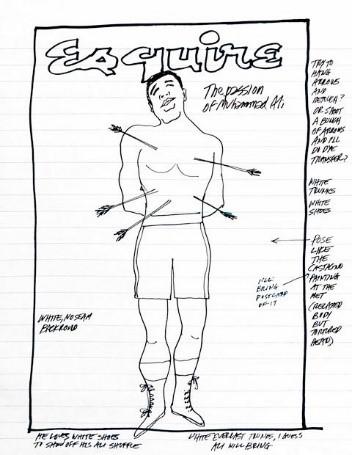 Esquire
The passion
of Muhammad Ali
TRY TO
HANG
ARROWS
AND
RETOUCH?
OR SHOOT
A BUNCH
OF ARROWS
AND I'LL
DO DYE
TRANSFER?
WHITE
TRUNKS
WHITE
SHOES
POSE
LIKE
THE
CASTAGNO
PAINTING
AT THE
MET
BODY
BUT
TORTURED
HEAD)
I'LL
BRING
POSTCARD
OF IT
WHITE, NO SEAM
BACKROUND
HE LOVES WHITE SHOES
TO SHOW OFF HIS ALI SHUFFLE
WHITE EVERLAST TRUNKS, I GUESS
ALI WILL BRING